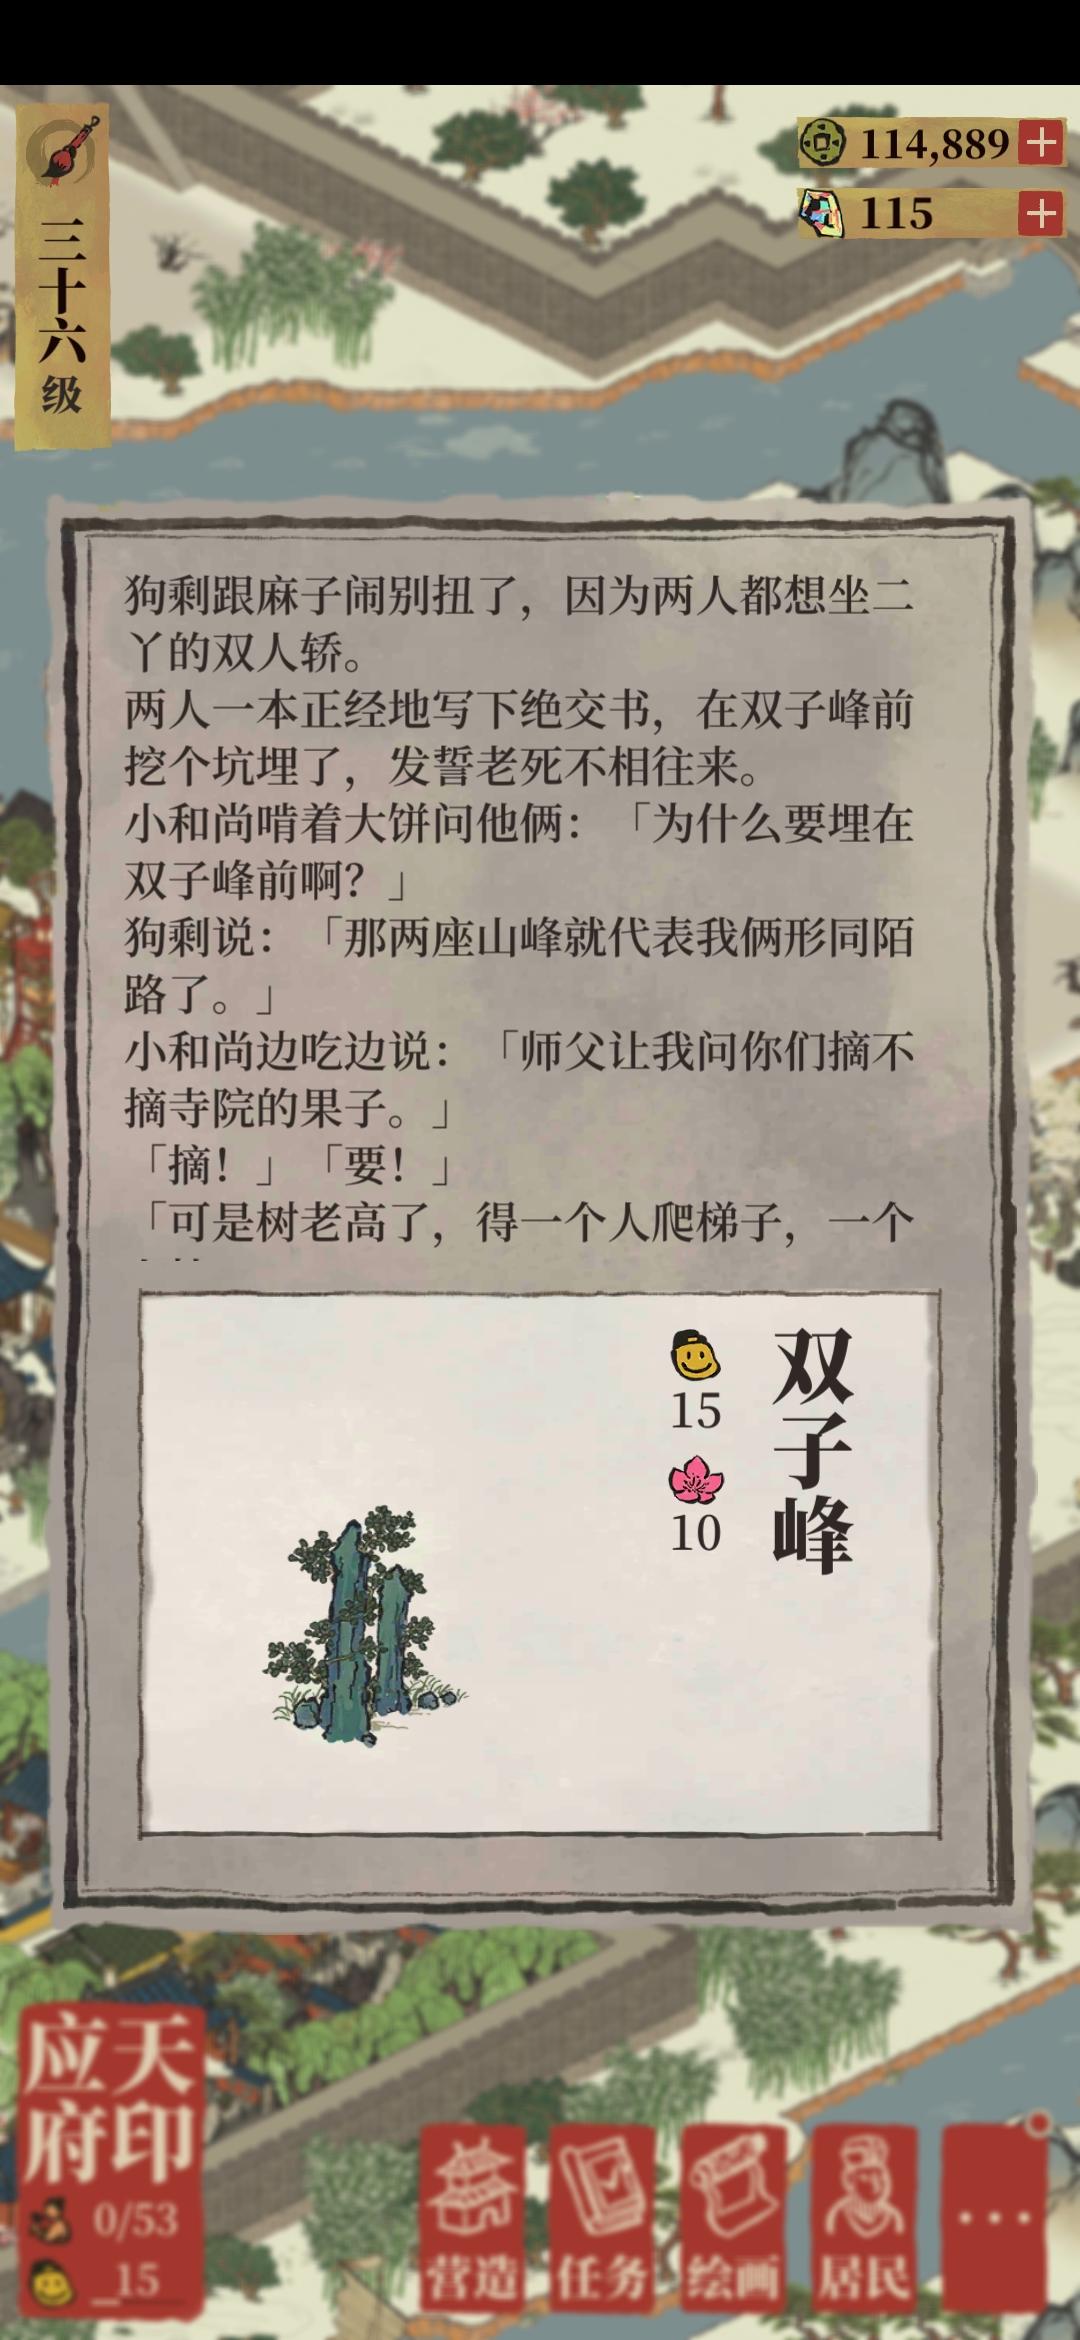 三十六级
114,889
115
狗剩跟麻子闹别扭了，因为两人都想坐二
丫的双人轿。
两人一本正经地写下绝交书，在双子峰前
挖个坑埋了，发誓老死不相往来。
小和尚啃着大饼问他俩：「为什么要埋在
双子峰前啊？」
狗剩说：「那两座山峰就代表我俩形同陌
路了。」
小和尚边吃边说：「师父让我问你们摘不
摘寺院的果子。」
「摘！」「要！」
「可是树老高了，得一个人爬梯子，一个
双子峰
15
10
天印
应府
0/53
15
营造
任务
绘画
居民
...